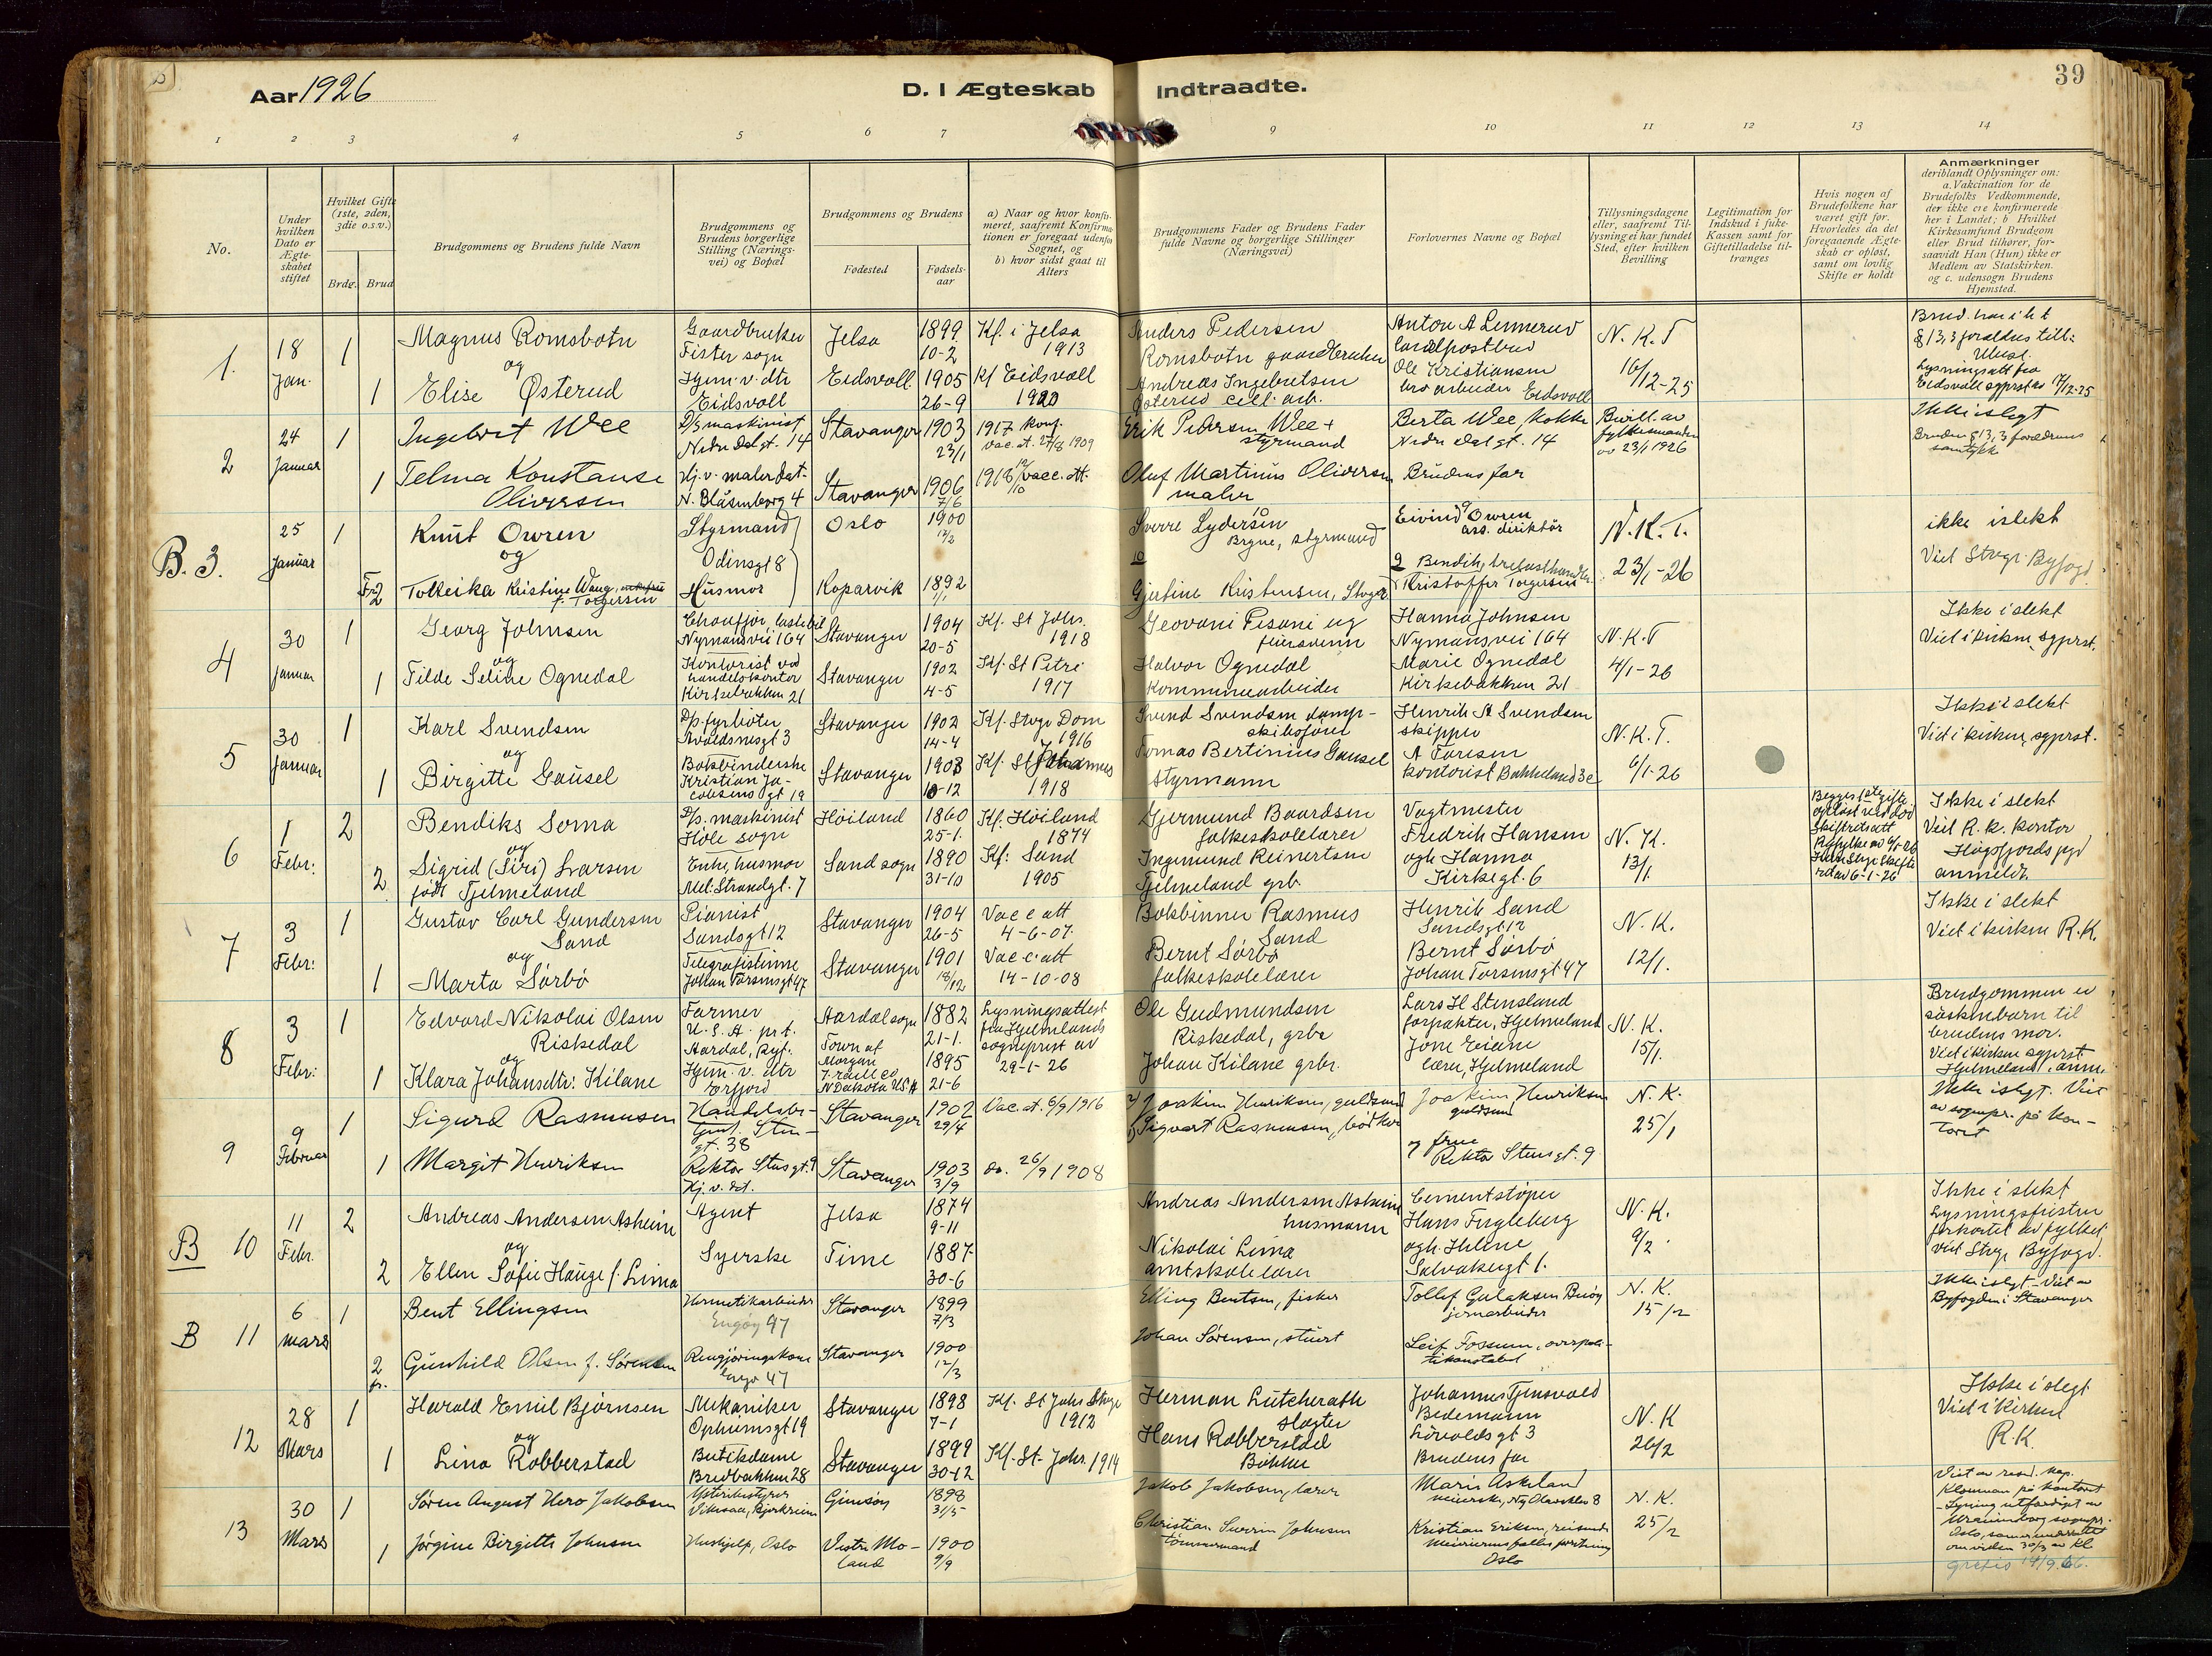 Aar 1926
D. I Ægteskab Indtraadte.
39
1 2 3 4 5 6 7 9 10 11 12 13 14
No.
Under hvilken Dato er Ægteskabet stiftet
Hvilket Gifte (1ste, 2den, 3die o.s.v.)
Brdg. Brud
Brudgommens og Brudens fulde Navn
Brudgommens og Brudens borgerlige Stilling (Næringsvei) og Bopæl
Brudgommens og Brudens
Fødested
Fødselsaar
a) Naar og hvor konfirmeret, saafremt Konfirmationen er foregaat udenfor Sognet, og
b) hvor sidst gaat til Alters
Brudgommens Fader og Brudens Fader fulde Navne og borgerlige Stillinger (Næringsvei)
Forlovernes Navne og Bopæl
Tillysningsdagene eller, saafremt Tillysning ei har fundet Sted, efter hvilken Bevilling
Legitimation for Indskud i fuke-Kassen samt for Giftetilladelse tiltrænges
Hvis nogen af Brudefolkene har været gift før. Hvorledes da det foregaaende Ægteskab er opløst, samt om lovlig Skifte er holdt
Anmærkninger
deriblandt Oplysninger om: a. Vakcination for de Brudefolks Vedkommende, der ikke ere konfirmerede her i Landet; b Hvilket Kirkesamfund Brudgom eller Brud tilhører, forsaavidt Han (Hun) ikke er Medlem av Statskirken. og c. udensogn Brudens Hjemsted.
1. 18 Jan. 1 Magnus Romsbotn Gaardbruker Fister sogn Jelsa 1899 10-2 Kf. i Jelsa 1913
Anders Pedersen Romsbotn gaardbruker Anton A Lennerud landpostbud N.K.T 16/12-25
og
1 Elise Østerud Hjem. v. dtr Eidsvoll Eidsvoll 1905 26-9 Kf Eidsvoll 1920
Andreas Ingebretsen Østerud cell. arb. Ole Kristiansen bro arbeider Eidsvoll
Lysningsatt fra Eidsvoll sgprst av 17/12-25
2 24 Januar 1 Ingebret Wee D/s maskinist Nedre Dalgt. 14 Stavanger 1903 23/1 1917 konf. vac. at. 27/8 1909
Erik Pedersen Wee + styrmand Berta Wee, kokke Nedre Dalgt. 14 Bevill. av fylkesmanden av 23/1 1926 Ikke i slegt
Bruden § 13,3 forældrenes samtykke
1 Telma Konstanse Oliversen Hj. v. maler dat. N. Blåsenborg 4 Stavanger 1906 7/6 1918 vacc. att.
Oluf Martinus Oliversen maler Brudens far
B. 3. 25 Januar 1 Knut Owren Styrmand Oslo 1900
Sverre Lydersen Bryne, styrmand Eivind Owren ass. direktør N.K.T. 23/1-26 ikke islekt
og
Odinsgt 8
Viet Stvgr. Byfogd
Fr. 2 Tolleika Kristine Waug, f. Torgersen Husmor Koparvik 1892 1/1
Kristoffer Torgersen
4 30 Januar 1 Georg Johnsen Chauffør, lastebil Nymansvei 164 Stavanger 1904 20-5 Kf. St Johs. 1918
Geovani Pisani ug feiersvenn Hanna Johnsen Nymansvei 164 N.K.T 4/1-26 Ikke i slekt Viet i kirken, sgprst.
og
1 Tilde Seline Ognedal Kontorist ved handelskontor Kirkebakken 21 Stavanger 1902 4-5 Kf. St Petri 1917
Halvor Ognedal Kommunearbeider Marie Ognedal Kirkebakken 21
5 30 Januar 1 Karl Svendsen D/s. fyrbøter Avaldsnesgt 3 Stavanger 1902 14-4 Kf. Stvgr Dom 1916
Svend Svendsen dampskibsfører Henrik A Svendsen skipper N.K.T. 6/1-26 Ikke i slekt Viet i kirken, sgprst.
og
1 Birgitte Gausel Bokbinderske Kristian Jacobsens gt 19 Stavanger 1903 10-12 Kf. St Johannes 1918
Tomas Bertinius Gausel Styrmann A Taresen kontorist Bakkeland 3c
6 1 Febr: 2 Bendiks Soma D/s. maskinist Höle sogn Höiland 1860 25-1. Kf. Höiland 1874
Gjermund Baardsen folkeskolelærer Vagtmester Fredrik Hansen ogh Hanna Kirkegt. 6 N.K. 13/1.
Begges 1ste gifte opløst ved død
Ikke i slekt Viet R. k. kontor Høgsfjords pgd anmeldt.
og
2 Sigrid (Siri) Larsen født Tjelmeland Enke, husmor Mel: Strandgt. 7 Sand sogn 1890 31-10 Kf: Sand 1905
Ingemund Reinertsen Tjelmeland grb.
7 3 Febr: 1 Gustav Carl Gundersen Sand Pianist Sandsgt 12 Stavanger 1904 26-5 Vacc att 4-6-07.
Bokbinner Rasmus Sand Henrik Sand Sandsgt 12 N.K. 12/1. Ikke i slekt Viet i kirken R.K.
og
1 Marta Sörbö Telegrafistinne Johan Torsensgt 47 Stavanger 1901 18/12 Vacc att 14-10-08
Bernt Sörbö folkeskolelærer Bernt Sörbö Johan Torsensgt 47
8 3 Febr: 1 Edvard Nikolai Olsen Riskedal Farmer U.S.A. p.t. Aardal, Ryf. Aardal sogn 1882 21-1. Lysningsattest fra Hjelmelands sogneprest av 29-1-26
Ole Gudmundsen Riskedal, grbr Lars H Stensland forpakter, Hjelmeland N.K. 15/1.
Brudgommen er søskenbarn til brudens mor. Viet i kirken sgprst. Hjelmeland, anm.
og
1 Klara Johansdtr. Kilane Hjem. v. dtr Erfjord Town of Morgan Traill Co N Dakota U.S.A 1895 21-6
Johan Kilane grbr. Jone Eiane lærer, Hjelmeland
9 9 Februar 1 Sigurd Rasmussen Stavanger 1902 29/4 Vac. at. 6/9 1916
2) Joakim Henriksen, guldsmed Joakim Henriksen guldsmed N.K. 25/1 Ikke islegt. Viet av sognepr. på kontoret
1) Sigvart Rasmussen, bødker
1 Margit Henriksen Rektor Stensgt. 9 Hj. v. dat. Stavanger 1903 3/9 do. 26/9 1908
og frue Rektor Stensgt. 9
B 10 11 Febr. 2 Andreas Andersen Asheim Agent Jelsa 1874 9-11
Andreas Andersen Asheim husmann Cementstøper Hans Fugleberg ogh. Helene Solvakergt 1. N.K. 9/2.
Ikke i slekt Lysningsfristen forkortet av fylket viet Stvgr Byfogd.
og
2 Ellen Sofie Hauge f. Lima Syerske Time 1887 30-6
Nikolai Lima amtskolelærer
B 11 6 mars 1 Bent Ellingsen Hermetikarbeider Engøy 47 Stavanger 1899 7/3
Elling Bentsen, fisker Tollef Gulaksen Buøy jernarbeider N.K. 15/2 Ikke islegt - Viet av Byfogden i Stavanger
2 fr. Gunhild Olsen f. Sørensen Rengjøringskone Engø 47 Stavanger 1900 12/3
Johan Sørensen, stuert Leif Fossum, overpolitikonstabel
12 28 Mars 1 Harald Emil Bjørnsen Mekaniker Ophiemsgt 19 Stavanger 1898 7-1 Kf. St Johs Stvgr 1912
Herman Lütcherath slagter Johannes Tjensvold Bedemann Lövoldsgt 3 N.K 26/2 Ikke i slegt Viet i kirken R.K.
og
1 Lina Robberstad Butikdame Bredbakken 28 Stavanger 1899 30-12 Kf. St. Johs. 1914
Hans Robberstad Bökker Brudens far
13 30 Mars 1 Søren August Hero Jakobsen Ysteribestyrer Vikesaa, Bjerkreim Gimsøy 1898 31/5
Jakob Jakobsen, lærer Marie Askeland meierske, Ny Olavskleiv 8 N.K. 25/2
Viet av resd. kap. Klouman på kontoret - Lysning utfærdiget av Uranienborg sognepr. Oslo, som er underrettet om vielsen 30/3 av Kl
1 Jørgine Birgitte Johnsen Hushjelp, Oslo Vestre Moland 1900 9/9
Christian Severin Johnsen tømmermand Kristian Eriksen, reisende Meieriernes fælles forretning Oslo
gratis 14/9.66.